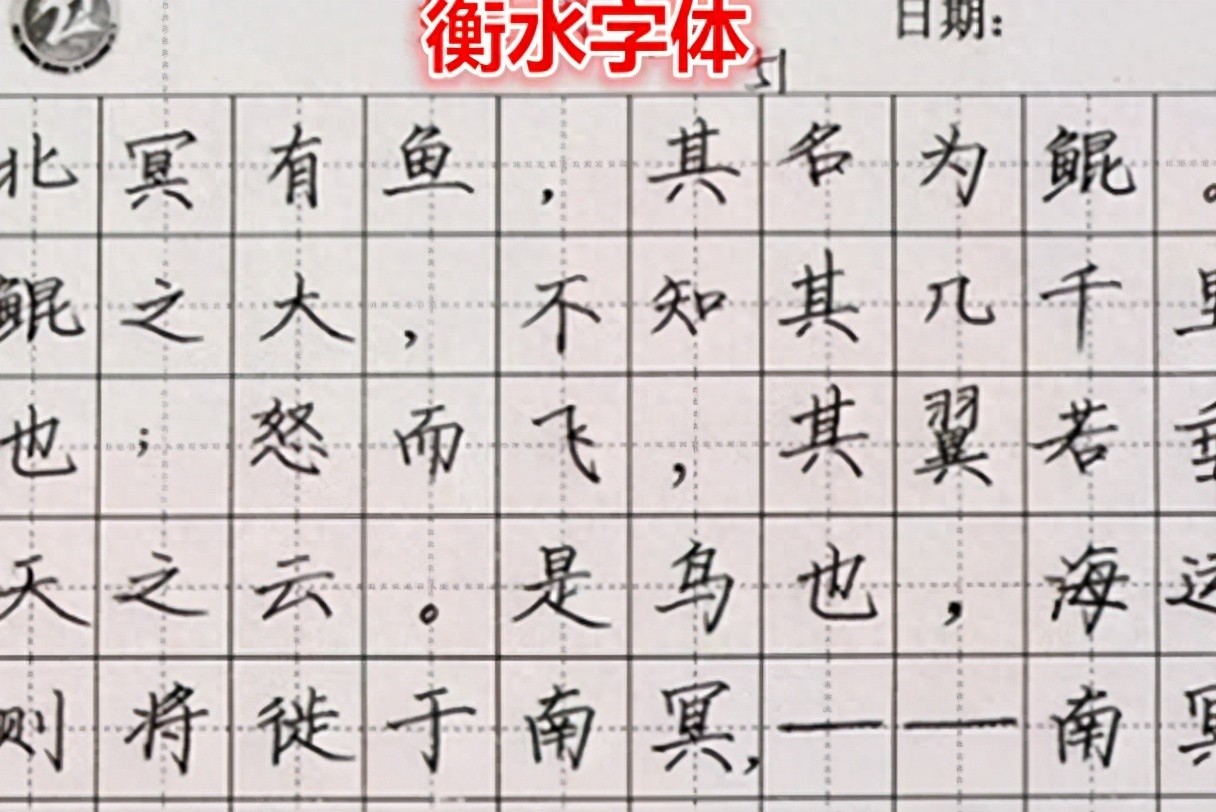 衡水字体
日期:
北冥有鱼,其名为鲲。
鲲之大,不知其几千里
也;怒而飞,其翼若垂
天之云。是鸟也,海运
则将徙于南冥,——南冥